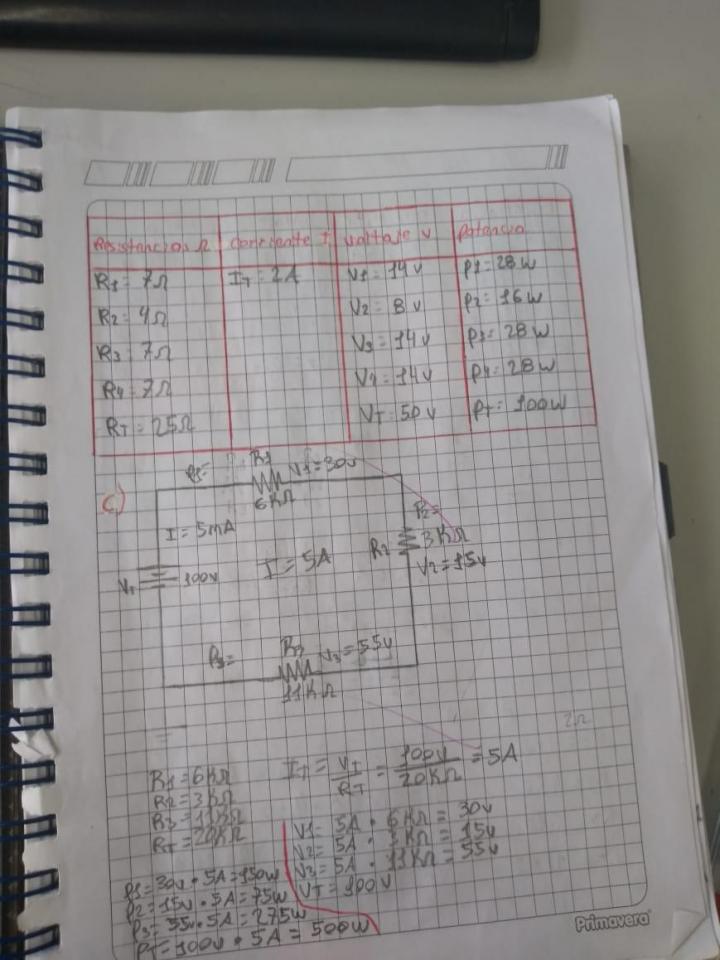 Resistencias Ω Corriente I Voltaje V Potencia
R1 = 7Ω IT = 2A V1 = 14v P1 = 28w
R2 = 4Ω V2 = 8v P2 = 16w
R3 = 7Ω V3 = 14v P3 = 28w
R4 = 7Ω V4 = 14v P4 = 28w
RT = 25Ω VT = 50v PT = 100w
C)
R1 V1=30v
6KΩ
I = 5mA
P2=
R2 3KΩ
V2=15v
I = 5A
VT 100v
P3= R3 V3=55v
11KΩ
2Ω
R1 = 6KΩ
R2 = 3KΩ
R3 = 11KΩ
RT = 20KΩ
IT = VT/RT = 100v/20KΩ = 5A
V1= 5A · 6KΩ = 30v
V2= 5A · 3KΩ = 15v
V3= 5A · 11KΩ = 55v
VT = 100v
P1= 30v · 5A = 150w
P2= 15v · 5A = 75w
P3= 55v · 5A = 275w
PT= 100v · 5A = 500w
Primavera